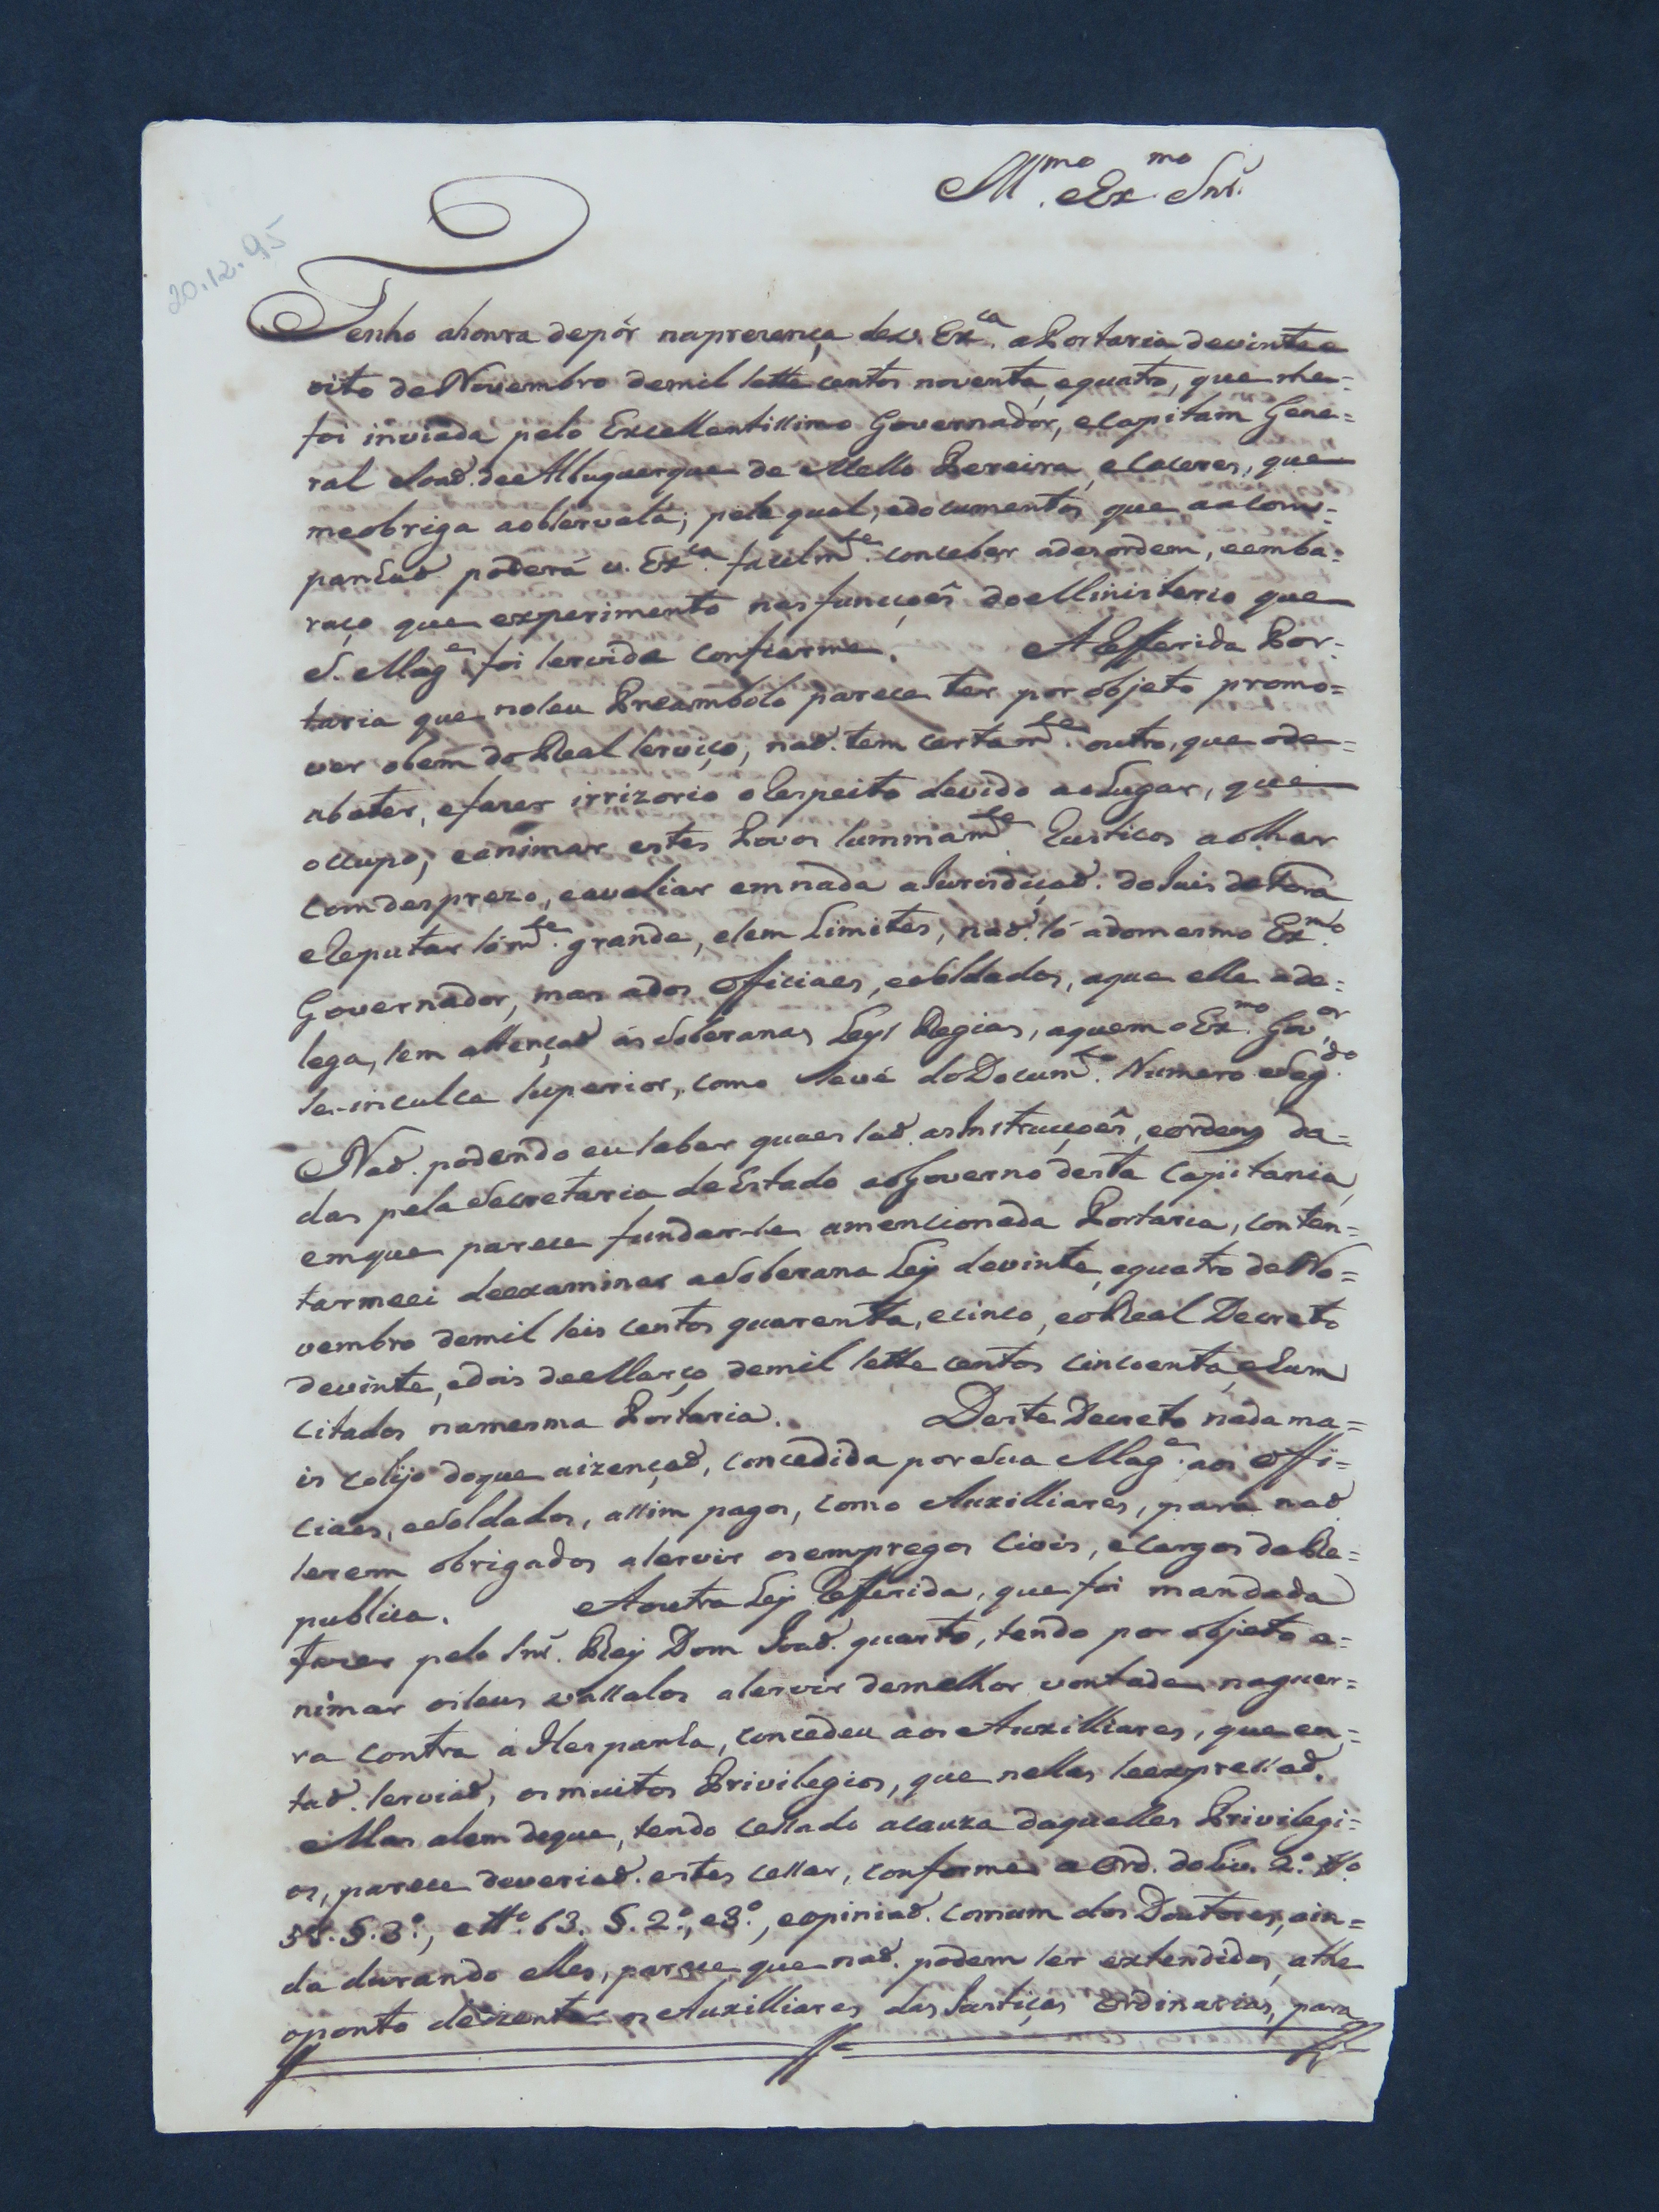 Ill.mo e Ex.mo Snr.
20.12.95
Tenho ahonra depôr naprezença dev. Ex.ca a Portaria devinte e
oito de Novembro demil sette centos noventa, equatro, que me=
foi inviada pelo Excellentissimo Governador, eCapitam Gene=
ral Joaõ de Albuquerque de Mello Pereira, eCaceres, que
meobriga aobservala; pela qual, edocumentos que aacom=
panhaõ poderá v. Ex.ca facilm.te conceber adezordem, eemba=
raço que experimento nas funcçoês do Ministerio que
S. Mag.e foi servida confiarme. A Refferida Por=
taria que noseu Preambolo parece ter por objeto promo=
ver obem do Real serviço, naõ tem certam.te outro, que ode=
abater, efazer irrizorio oRespeito devido aoLugar, que
occupo, eanimar estes Povos summam.te Rusticos aolhar
comdesprezo, eavaliar emnada aJurisdiçaõ do Juis defora
eReputar sóm.te grande, esem Limites, naõ só adomesmo Ex.mo
Governador, mas ados Officiaes, eSoldados, aque elle ade=
lega, sem attençaõ ás Soberanas Leys Regias, aquem o Ex.mo Gov.or
se-inculca superior, como sevé do Docum.to Numero Seg.do
Naõ podendo eu saber quaes saõ as Instrucçoês, eordens da=
das pela Secretaria de Estado aoGoverno desta Capitania,
emque parece fundar-se amencionada Portaria, conten=
tarmeei deexaminar aSoberana Ley devinte, equatro de No=
vembro demil seis centos quarenta, ecinco, eoReal Decreto
devinte, edois de Março demil sette centos cincoenta, ehum
citados namesma Portaria. Deste Decreto nada ma=
is colijo doque aizençaõ, concedida por Sua Mag.e aos Offi=
ciaes, eSoldados, assim pagos, como Auxilliares, para naõ
serem obrigados aservir osempregos Civis, eCargos da Re=
publica. Aoutra Ley Refferida, que foi mandada
fazer pelo Snr. Rey Dom Joaõ quarto, tendo por objeto a=
nimar oseus vassalos aServir demelhor vontade naguer=
ra contra a Hespanha, concedeu aos Auxilliares, que en=
taõ serviaõ, os muitos Privilegios, que nellas seexpressaõ.
Mas alem deque, tendo cessado acauza daquelles Privilegi=
os, parece deveriaõ estes cessar, conforme a Ord. do Liv. 2.º tt.º
§. 3.º, e tt.º 63. §. 2.º, e3.º, eopiniaõ comum dos Doutores, ain=
da durando elles, parece que naõ podem ser extendidos, athe
oponto deizentar os Auxilliares das Justiças Ordinarias, para